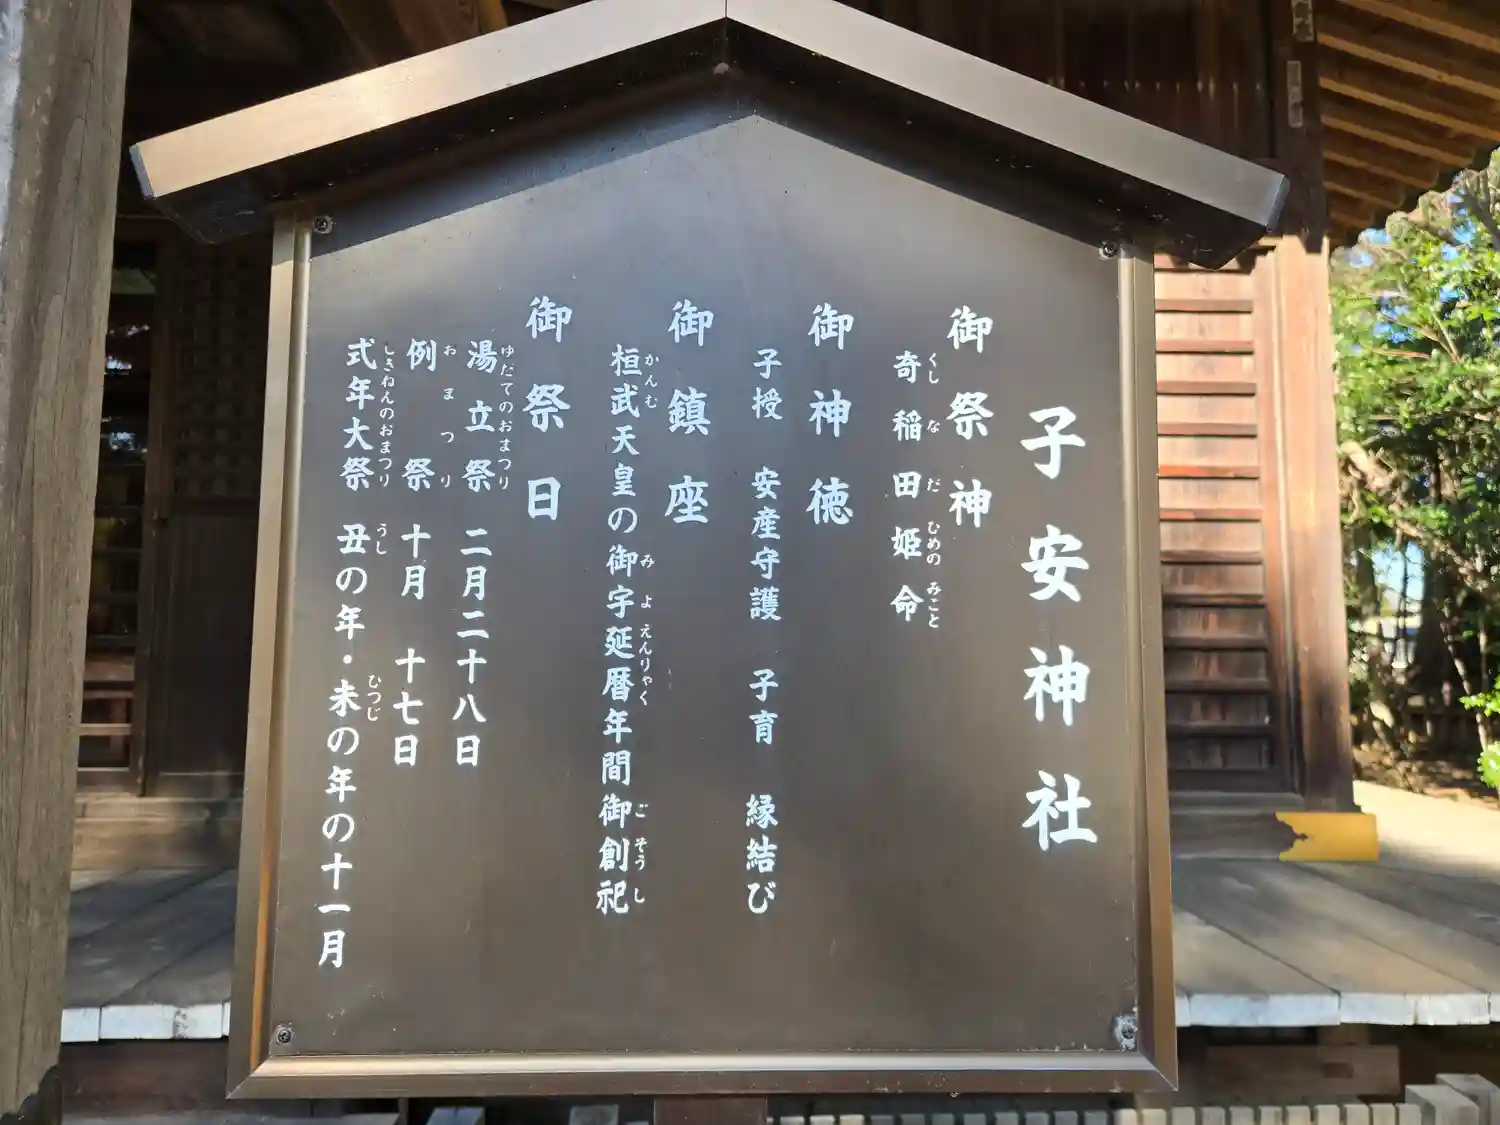 子安神社
御祭神
奇稲田姫命
くし な だ ひめの みこと
御神徳
子授 安産守護 子育 縁結び
御鎮座
桓武天皇の御宇延暦年間御創祀
かんむ み よ えんりゃく ご そう し
御祭日
湯立祭 二月二十八日
ゆだてのおまつり
例祭 十月 十七日
おまつり
式年大祭 丑の年・未の年の十一月
しきねんのおまつり うし ひつじ